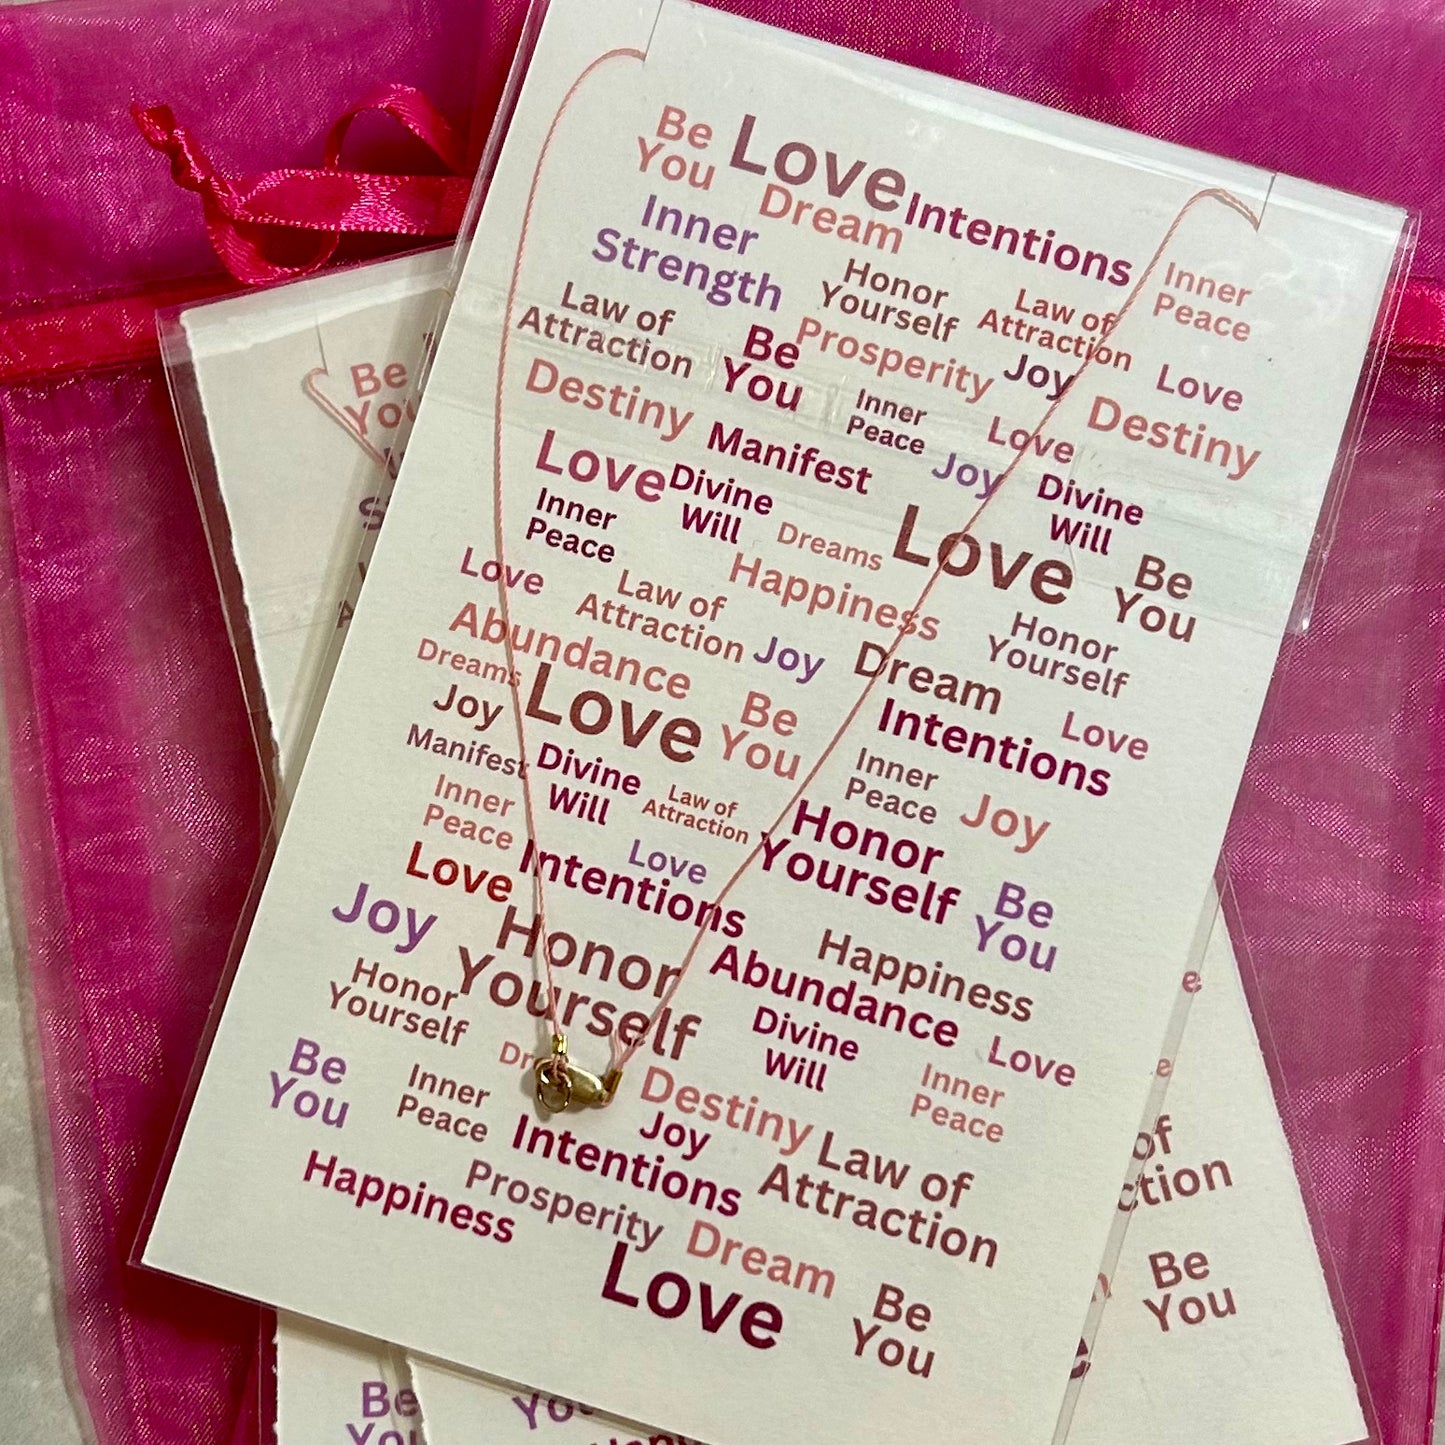 Be
You
Love
Intentions
Dream
Inner
Strength
Honor
Yourself
Law of
Attraction
Inner
Peace
Law of
Attraction
Be
You
Prosperity
Joy
Love
Destiny
Manifest
Inner
Peace
Love
Destiny
Love
Divine
Will
Joy
Divine
Will
Inner
Peace
Dreams
Love
Be
You
Love
Law of
Attraction
Happiness
Honor
Yourself
Abundance
Joy
Dream
Dreams
Love
Be
You
Intentions
Love
Joy
Manifest
Divine
Will
Law of
Attraction
Inner
Peace
Joy
Inner
Peace
Love
Honor
Yourself
Be
You
Love
Intentions
Joy
Honor
Yourself
Abundance
Happiness
Honor
Yourself
Divine
Will
Love
Be
You
Inner
Peace
Destiny
Inner
Peace
Intentions
Joy
Law of
Attraction
Happiness
Prosperity
Dream
Love
Be
You
Be
of
Be
You
Be